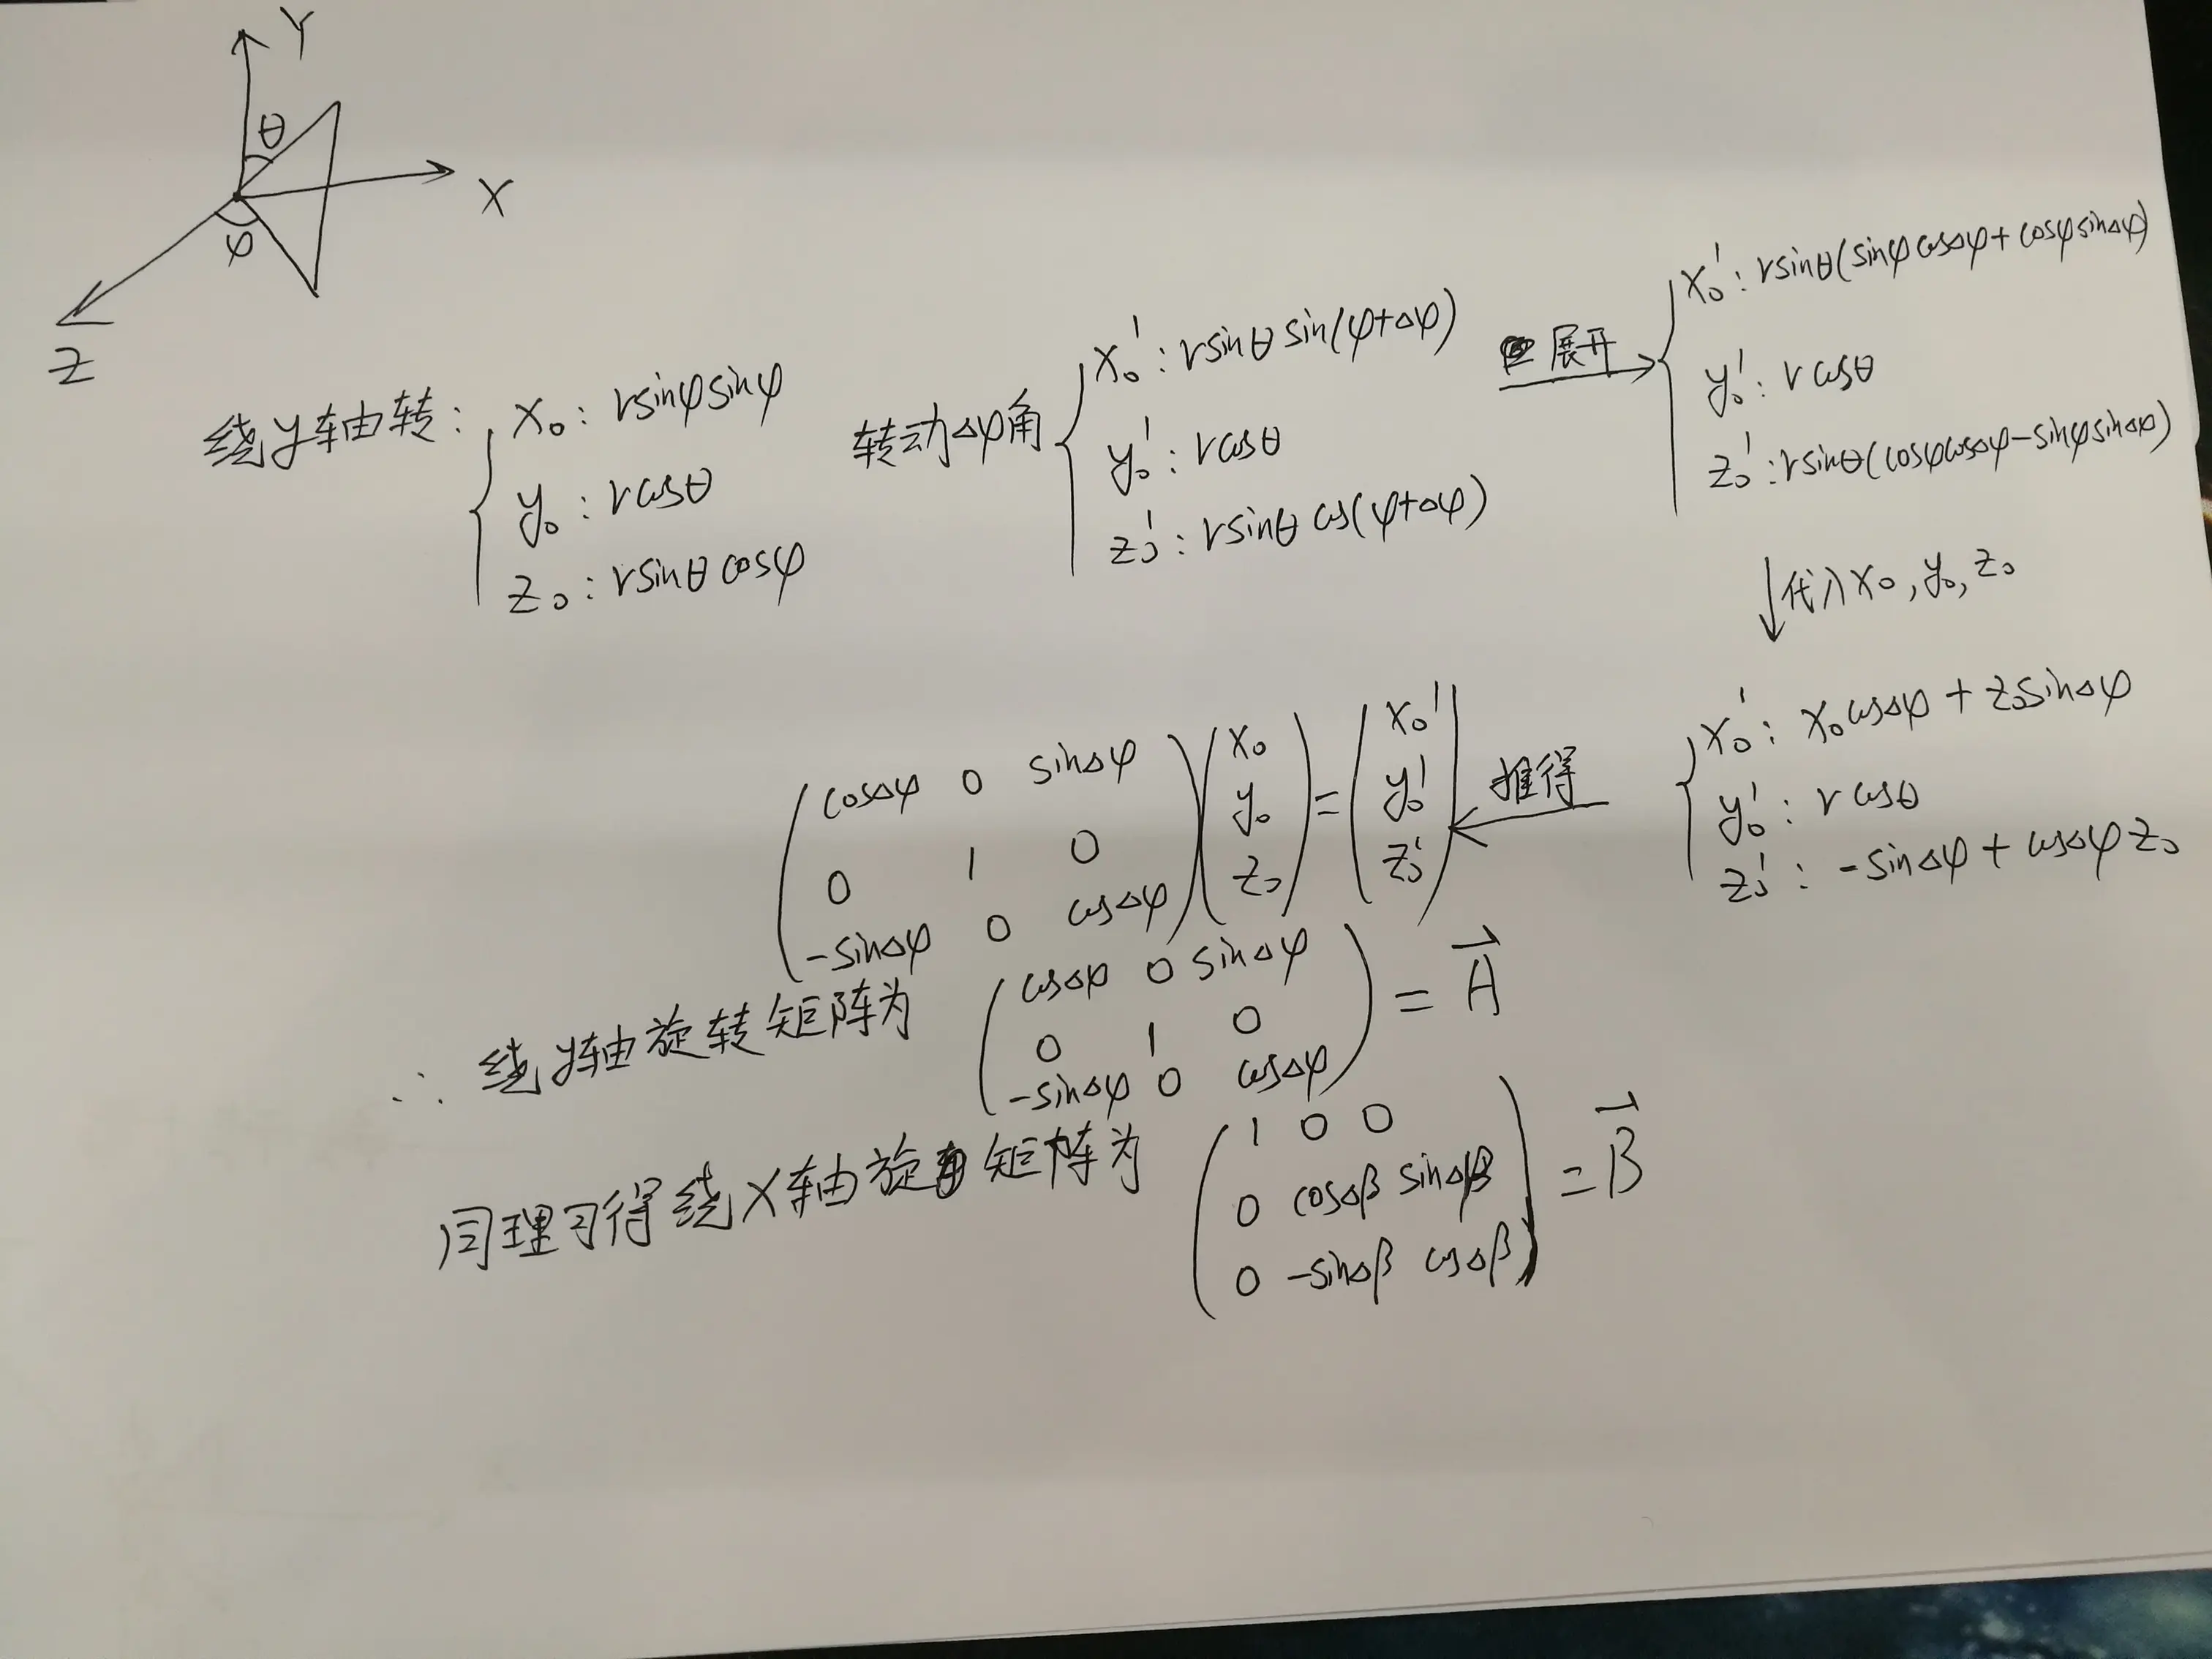 Y
θ
X
φ
Z
绕y轴转: { x₀: rsinφsinφ
y₀: rcosθ
z₀: rsinθcosφ
转动Δφ角 { x₀': rsinθsin(φ+Δφ)
y₀': rcosθ
z₀': rsinθcos(φ+Δφ)
展开
{ x₀': rsinθ(sinφcosΔφ+cosφsinΔφ)
y₀': rcosθ
z₀': rsinθ(cosφcosΔφ-sinφsinΔφ)
↓代入x₀,y₀,z₀
{ x₀': x₀cosΔφ+z₀sinΔφ
y₀': rcosθ
z₀': -sinΔφ+cosΔφz₀
推得
(cosΔφ 0 sinΔφ) (x₀) = (x₀')
(0 1 0) (y₀) (y₀')
(-sinΔφ 0 cosΔφ) (z₀) (z₀')
∴ 绕y轴旋转矩阵为 (cosΔφ 0 sinΔφ
0 1 0
-sinΔφ 0 cosΔφ) = A⃗
同理可得绕X轴旋 矩阵为 (1 0 0
0 cosΔβ sinΔβ
0 -sinΔβ cosΔβ) = B⃗